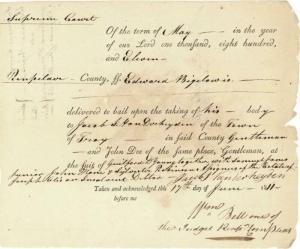 Supreme Court
Of the term of May in the year
of our Lord one thousand, eight hundred,
and Eleven
Renselaer County, ss. Edward Bigelow is
delivered to bail upon the taking of his body
to Jacob S. Van Derheyden of the Town
of Troy in said County Gentleman
and John Doe of the same place, Gentleman, at
the suit of Guilford D. Young together with Samuel
junior John and Robinson of the
Joseph an Insolvent Debtor
Taken and acknowledged this 17th day of June 1811
before me
Bell one of
the Judges